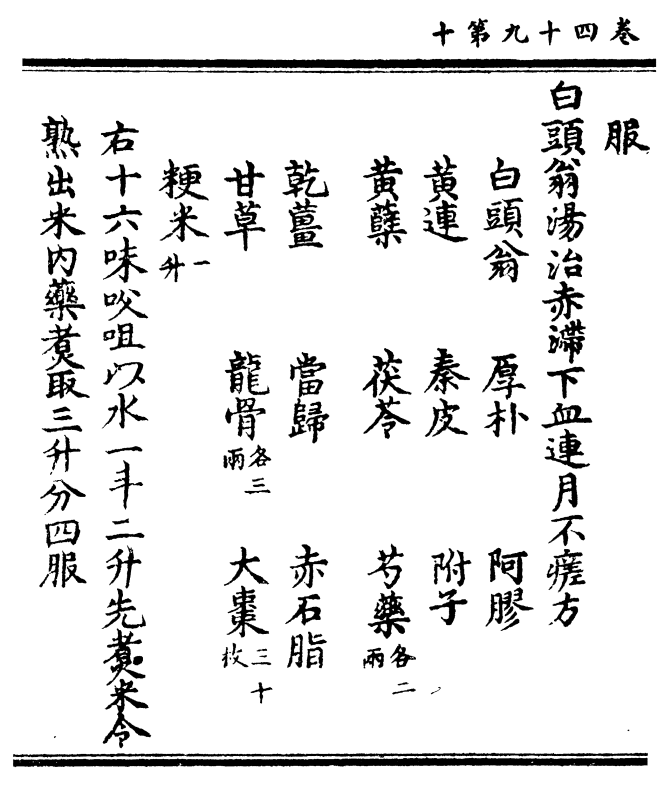 卷四十九第十
服
白頭翁湯治赤滯下血連月不瘥方
白頭翁 厚朴 阿膠
黃連 秦皮 附子
黃蘗 茯苓 芍藥各二兩
乾薑 當歸 赤石脂
甘草 龍骨各三兩 大棗三十枚
粳米一升
右十六味㕮咀以水一斗二升先煮米令
熟出米內藥煮取三升分四服